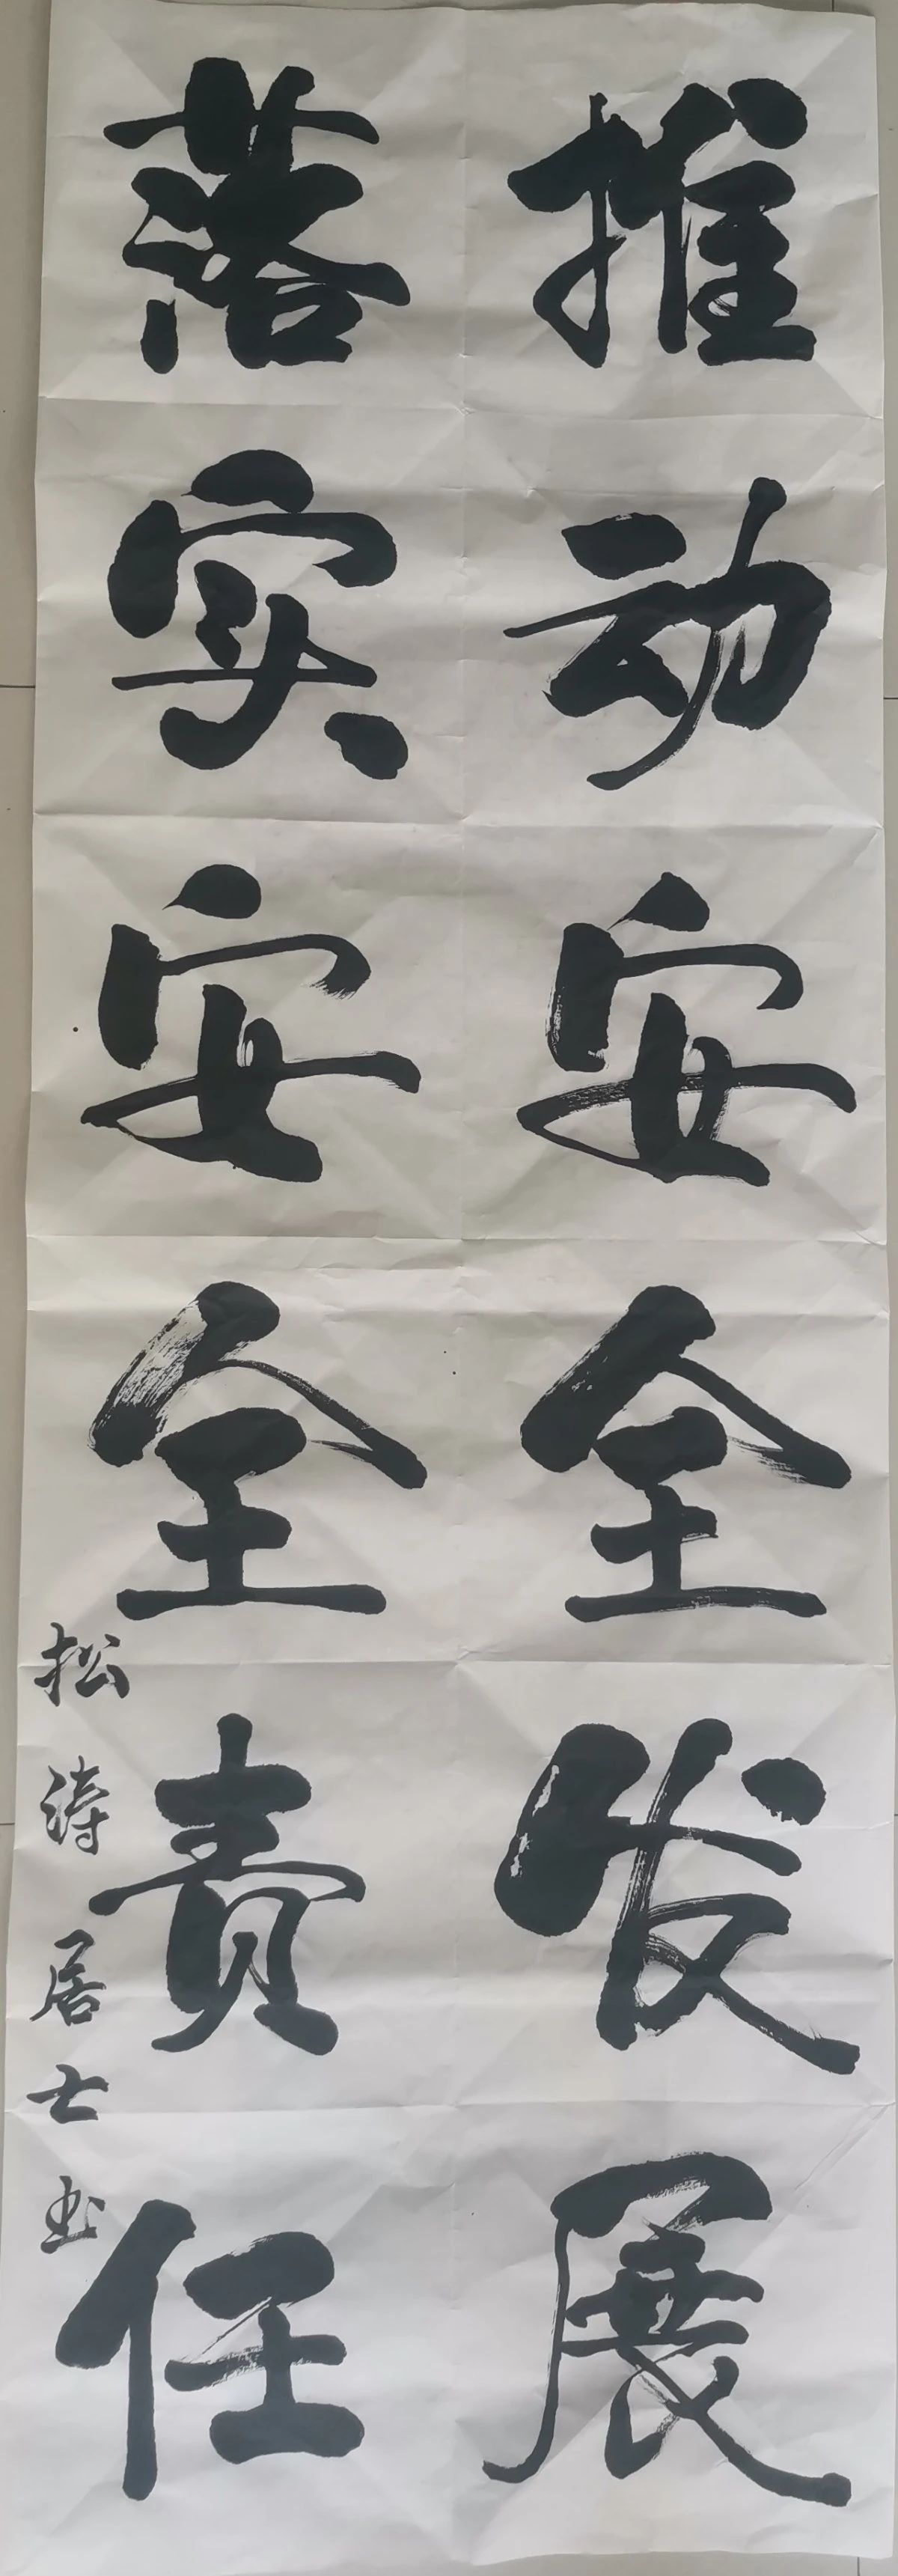 推动安全发展
落实安全责任
松涛居士书